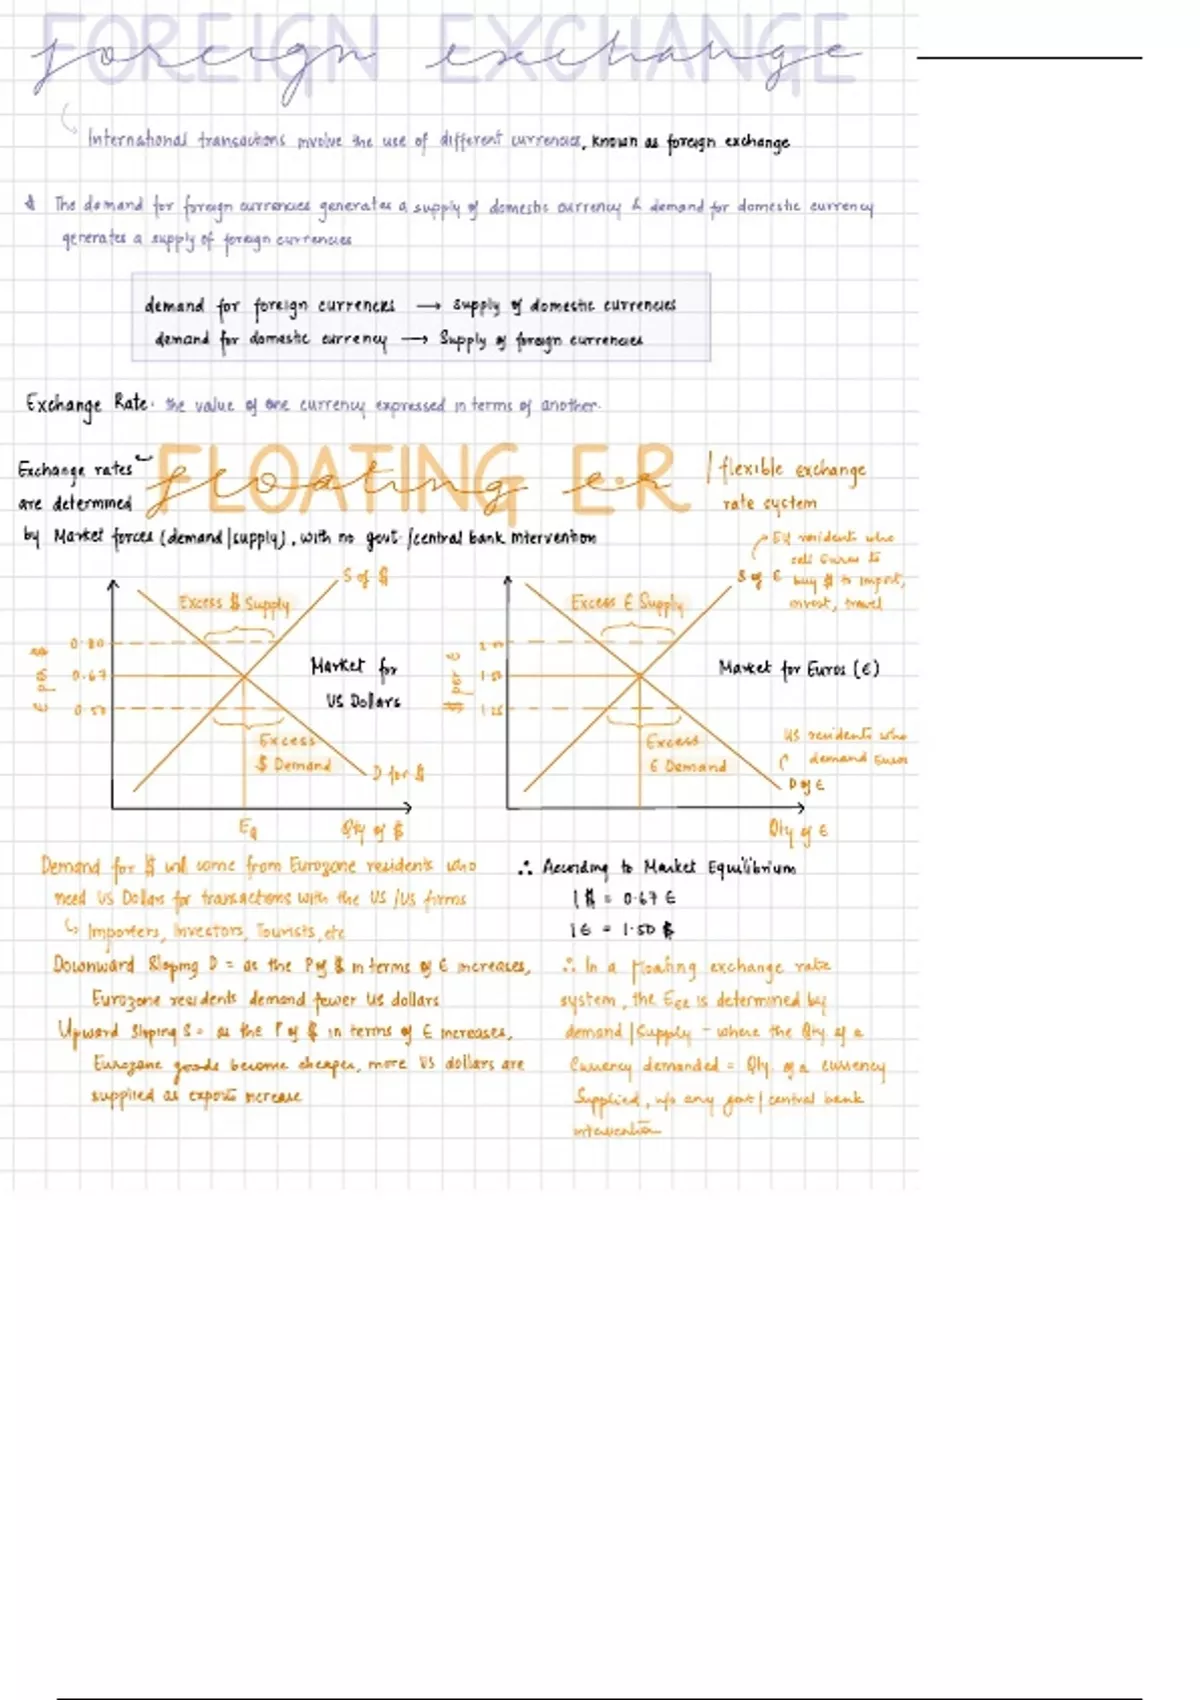 FOREIGN EXCHANGE
foreign exchange
International transactions involve the use of different currencies, known as foreign exchange
The demand for foreign currencies generates a supply of domestic currency & demand for domestic currency
generates a supply of foreign currencies
demand for foreign currencies → supply of domestic currencies
demand for domestic currency → Supply of foreign currencies
Exchange Rate: the value of one currency expressed in terms of another.
FLOATING E.R
floating e.r
| flexible exchange
rate system
Exchange rates
are determined
by Market forces (demand|supply), with no govt./central bank intervention
EU residents who
sell Euros to
buy $ to import,
invest, travel
S of $
Excess $ Supply
€ per $
0.80
0.67
0.50
Market for
US Dollars
Excess
$ Demand
D for $
EQ
Qty of $
S of €
Excess € Supply
$ per €
1.50
1.25
Market for Euros (€)
Excess
€ Demand
US residents who
demand Euros
D of €
Qty of €
Demand for $ will come from Eurozone residents who
need US Dollars for transactions with the US /US firms
↳ Importers, Investors, Tourists, etc
Downward Sloping D = as the P of $ in terms of € increases,
Eurozone residents demand fewer US dollars
Upward Sloping S = as the P of $ in terms of € increases,
Eurozone goods become cheaper, more US dollars are
supplied as exports increase
∴ According to Market Equilibrium
1$ = 0.67 €
1€ = 1.50 $
∴ In a floating exchange rate
system, the EER is determined by
demand|Supply - where the Qty. of a
Currency demanded = Qty. of a currency
Supplied, w/o any govt/central bank
intervention